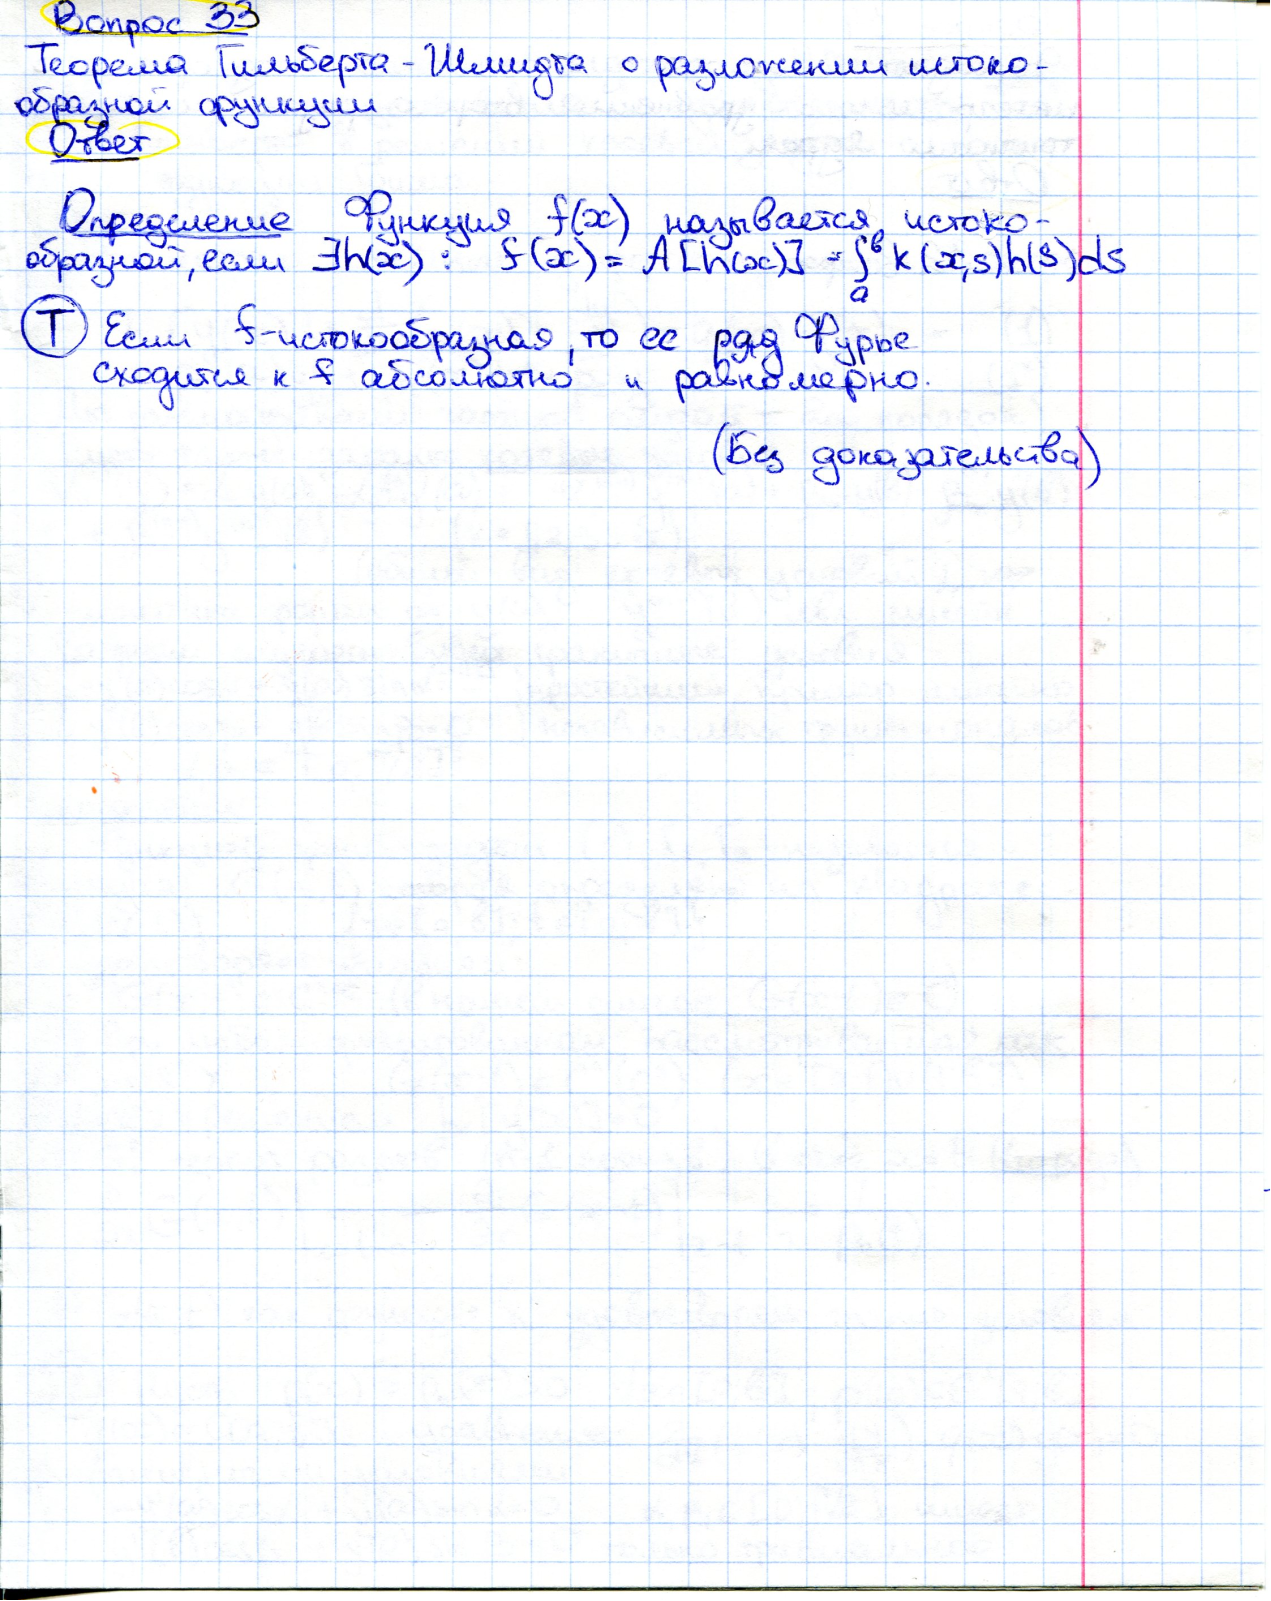 Вопрос 33
Теорема Гильберта-Шмидта о разложении истоко-
образной функции
Ответ
Определение Функция f(x) называется истоко-
образной, если ∃h(x): f(x) = A[h(x)] = ∫ₐᵇ K(x,s)h(s)ds
Т Если f-истокообразная, то ее ряд Фурье
сходится к f абсолютно и равномерно.
(Без доказательства)